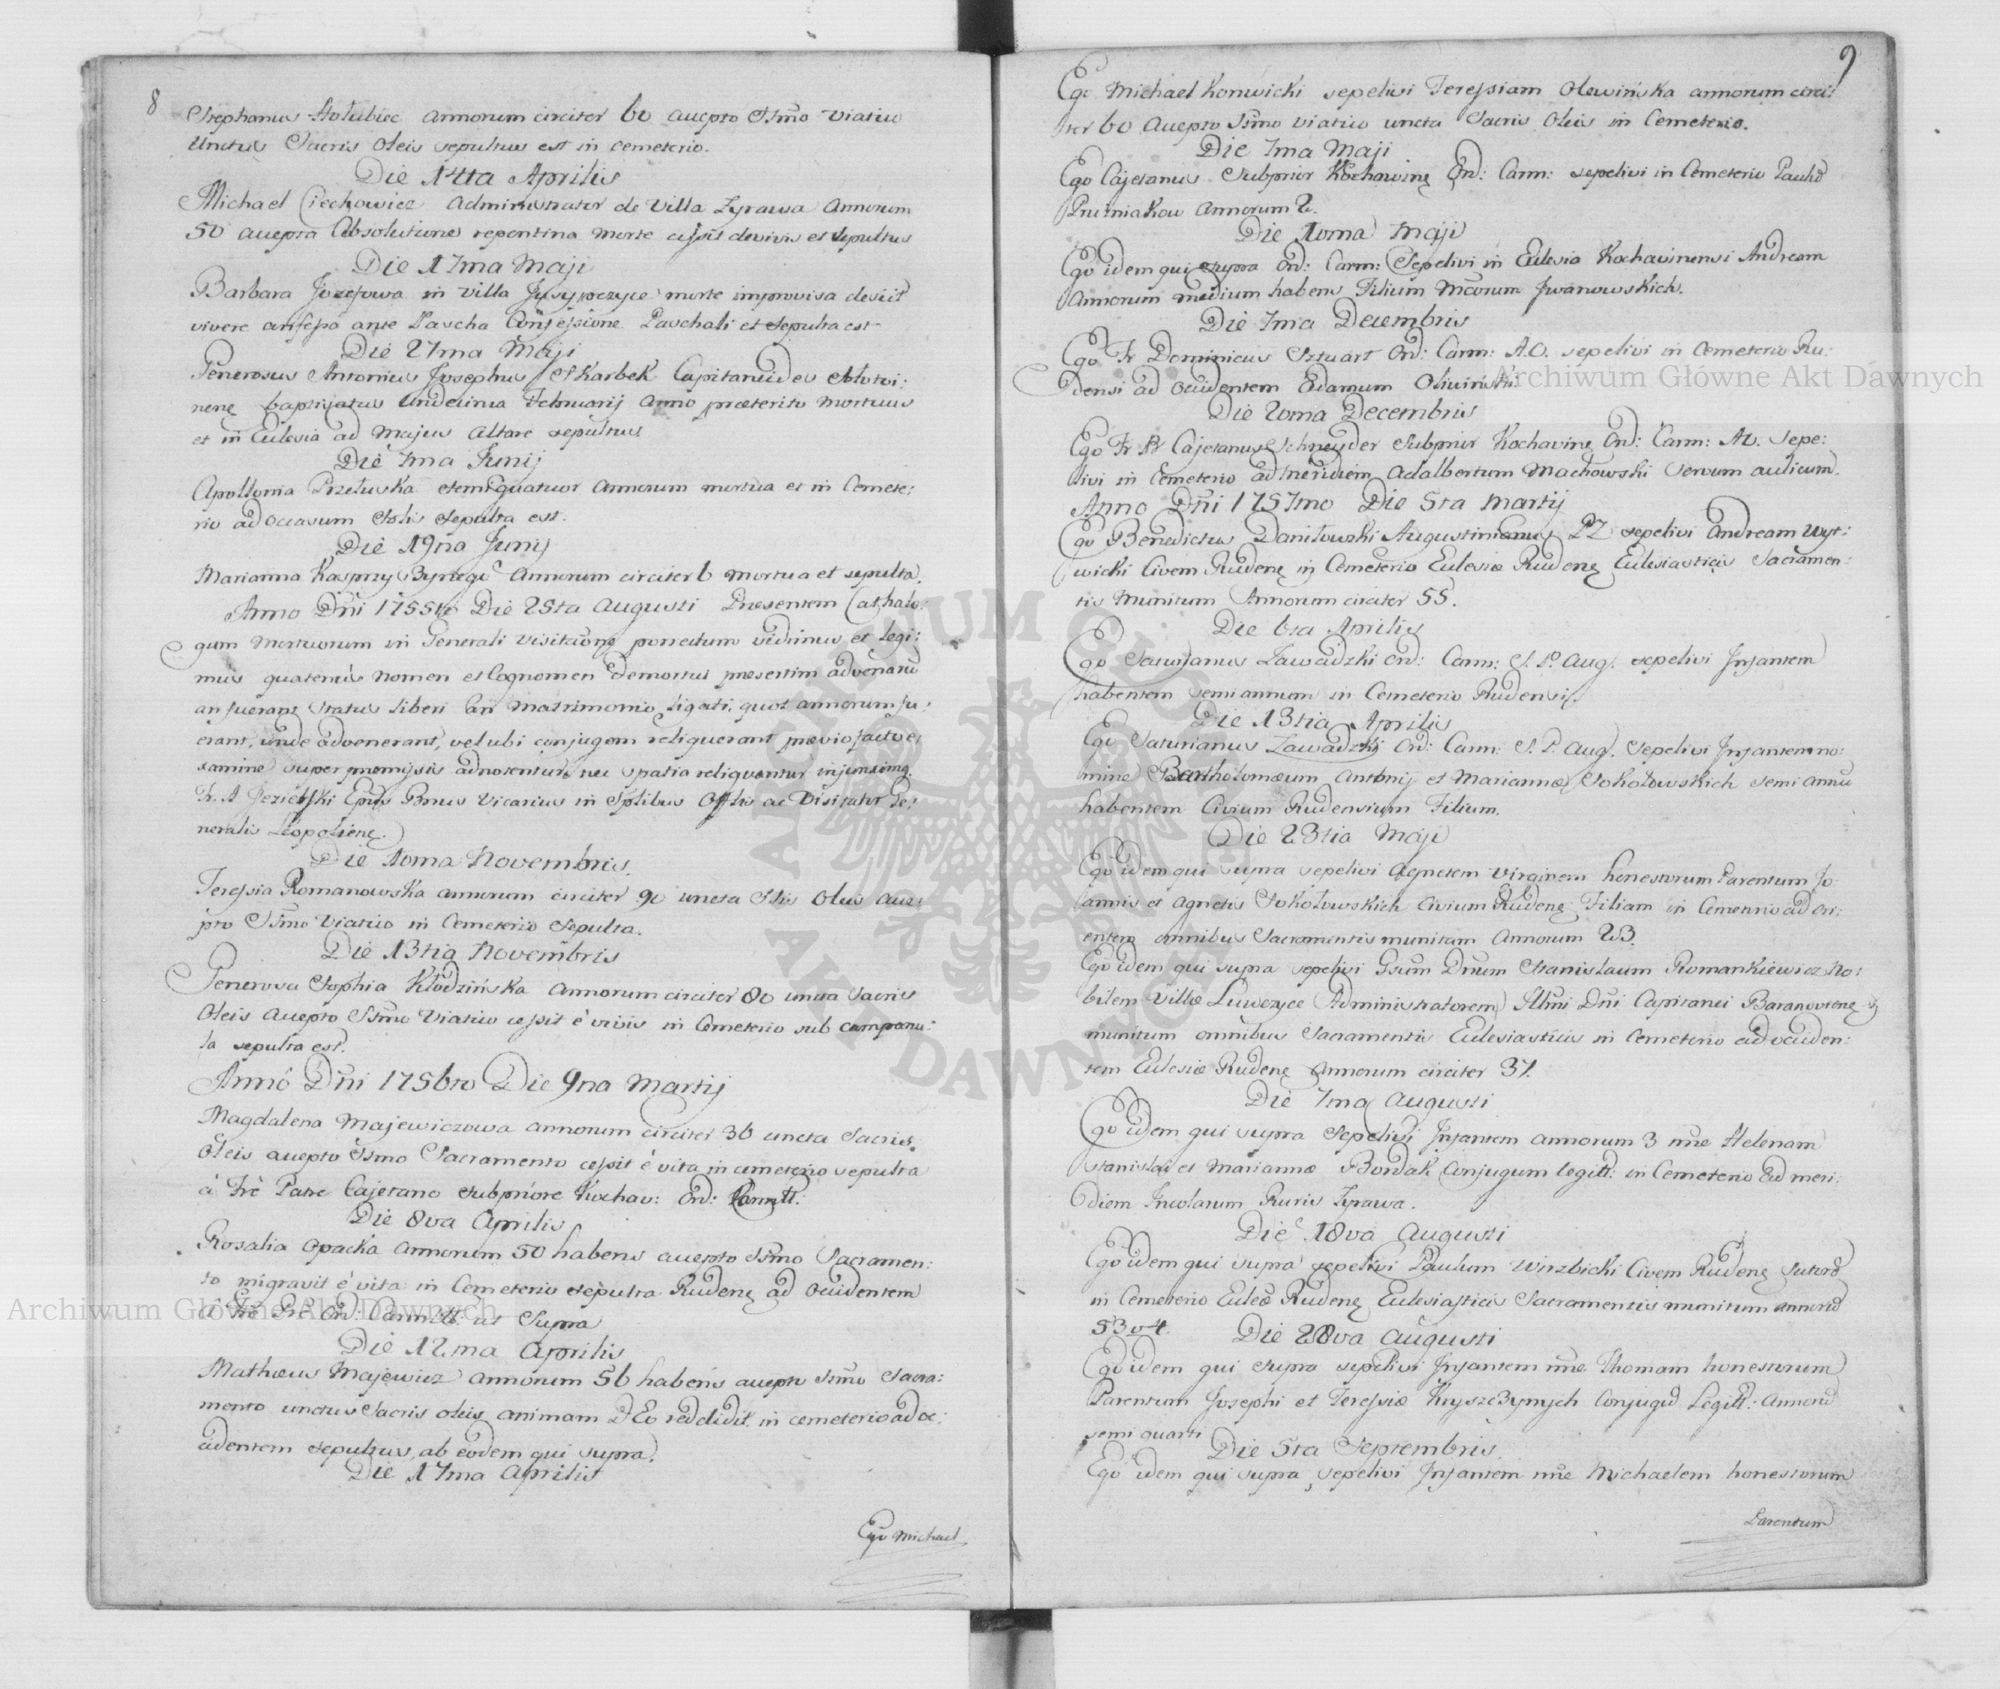 8
Stephanus Hołubiec annorum circiter 60 accepto SSmo Viatico
Unctus Sacris Oleis sepultus est in cemeterio.
Die 14ta Aprilis
Michael Ciechowicz Administrator de Villa Zyrawa Annorum
50 accepta Absolutione repentina morte cessit devivis et sepultus
Die 17ma Maji
Barbara Jozefowa in Villa Jusypczyce morte improvisa desiit
vivere ante Pascha Confessione Paschali et sepulta est
Die 27ma Maji
Generosus Antonius Josephus Skarbek Capitaneides
baptizatus undecima Februarij Anno præterito mortuus
et in Ecclesia ad Majus Altare sepultus
Die 7ma Junij
Apollonia Przełuska quatuor annorum mortua et in Cemete:
rio ad occasum Solis sepulta est.
Die 19na Junij
Marianna Kasprzy annorum circiter 6 mortua et sepulta.
Anno Dñi 1755to Die 25ta Augusti Presentem Cathalo:
gum Mortuorum in Generali Visitaõne porrectum vidimus et legi:
mus quatenus nomen et Cognomen demortui presertim advenarũ
an fuerant status liberi an matrimonio ligati, quot annorum fu:
erant, unde advenerant, vel ubi conjugem reliquerant prævio facto e:
xamine super premissis adnotentur, nec spatia reliquantur
Vicarius in Splibus Offlis ac Visitator Ge:
neralis Leopolienę.
Die 10ma Novembris.
Teressia Romanowska annorum circiter 90 uncta Oleis acce:
pto SSmo Viatico in Cemeterio sepulta.
Die 13tia Novembris
Generosa Sophia Kłodzińska annorum circiter 80 uncta Sacris
Oleis accepto SSmo Viatico cessit è vivis in Cemeterio sub campanu:
la sepulta est.
Anno Dñi 1756to Die 9na Martij
Magdalena Majewiczowa annorum circiter 36 uncta Sacris
Oleis accepto SSmo Sacramento cessit è vita in cemeterio sepulta
à Frè Patre Cajetano Subpriore Kochav: Ord: Carmtt:
Die 8va Aprilis
Rosalia Opacka annorum 50 habens accepto SSmo Sacramen:
to migravit è vita in Cemeterio sepulta Rudenę ad occidentem
à Frè Prè Ord: Carmtt: ut Supra
Die 12ma Aprilis
Mathæus Majewicz annorum 56 habens accepto SSmo Sacra:
mento unctus Sacris oleis animam DEo reddidit in cemeterio ad oc:
cidentem sepultus, ab eodem qui supra.
Die 17ma Aprilis
Ego Michael
9
Ego Michael Konwicki sepelivi Teressiam Olewińska annorum circi:
ter 60 accepto SSmo viatico uncta Sacris Oleis in Cemeterio.
Die 7ma Maji
Ego Cajetanus Subprior Kochavinę Ord: Carm: sepelivi in Cemeterio Paulũ
Prutniakow annorum 2.
Die 10ma Maji
Ego idem qui supra Ord: Carm: Sepelivi in Ecclesia Kochavinensi Andream
annorum medium habens Filium Iwanowskich.
Die 7ma Decembris
Ego Fr Dominicus Sztuart Ord: Carm: A.O. sepelivi in Cemeterio Ru:
densi ad occidentem Adamum Oliwiński
Die 20ma Decembris
Ego Fr Cajetanus Schneyder Subprior Kochavinę Ord: Carm: AO. Sepe:
livi in Cemeterio ad meridiem Adalbertum Machowski servum aulicum.
Anno Dñi 1757mo Die 5ta Martij
Ego Benedictus Daniłowski Augustinianus PZ sepelivi Andream Wyt:
wicki Civem Rudenę in Cemeterio Eclesiæ Rudenę Ecclesiasticis Sacramen:
tis Munitum Annorum circiter 55.
Die 6ta Aprilis
Ego Zawadzki Ord: Carm: S.P. Aug. sepelivi Infantem
habentem semiannum in Cemeterio Rudensi.
Die 13tia Aprilis
Ego Saturianus Zawadzki Ord: Carm: S.P. Aug. Sepelivi Infantem no:
mine Bartholomæum Antonij et Mariannæ Sokołowskich semi annũ
habentem Civium Rudensium Filium.
Die 23tia Maji
Ego idem qui supra sepelivi Agnetem Virginem honestorum Parentum Jo:
annis et Agnetis Sokołowskich Civium Rudenę Filiam in Cemeterio ad ori:
entem omnibus Sacramentis munitam Annorum 23.
Ego idem qui supra sepelivi Gsum Dnum Stanislaum Romankiewicz No:
bilem Villæ Luwczyce Administratorem Illmi Dni Capitanei
munitum omnibus Sacramentis Ecclesiasticis in Cemeterio ad occiden:
tem Eclesiæ Rudenę annorum circiter 37.
Die 7ma Augusti
Ego idem qui supra Sepelivi Infantem annorum 3 nñe Helenam
Stanislai et Mariannæ Bordak Conjugum legitt: in Cemeterio ad meri:
diem Incolarum Ruris Zyrawa.
Die 18va Augusti
Ego idem qui supra sepelivi Paulum Wirzbicki Civem Rudenę Sutorẽ
in Cemeterio Eccleæ Rudenę Eclesiasticis Sacramentis munitum annorũ
53 v 4.
Die 28va Augusti
Ego idem qui supra sepelivi Infantem nñe Thomam honestorum
Parentum Josephi et Teressiæ Kryszczynych Conjugũ Legitt: annorũ
semi quarti
Die 5ta Septembris
Ego idem qui supra sepelivi Infantem nñe Michaelem honestorum
Parentum
Archiwum Główne Akt Dawnych
Archiwum Główne Akt Dawnych
ARCHIWUM GŁÓWNE AKT DAWNYCH